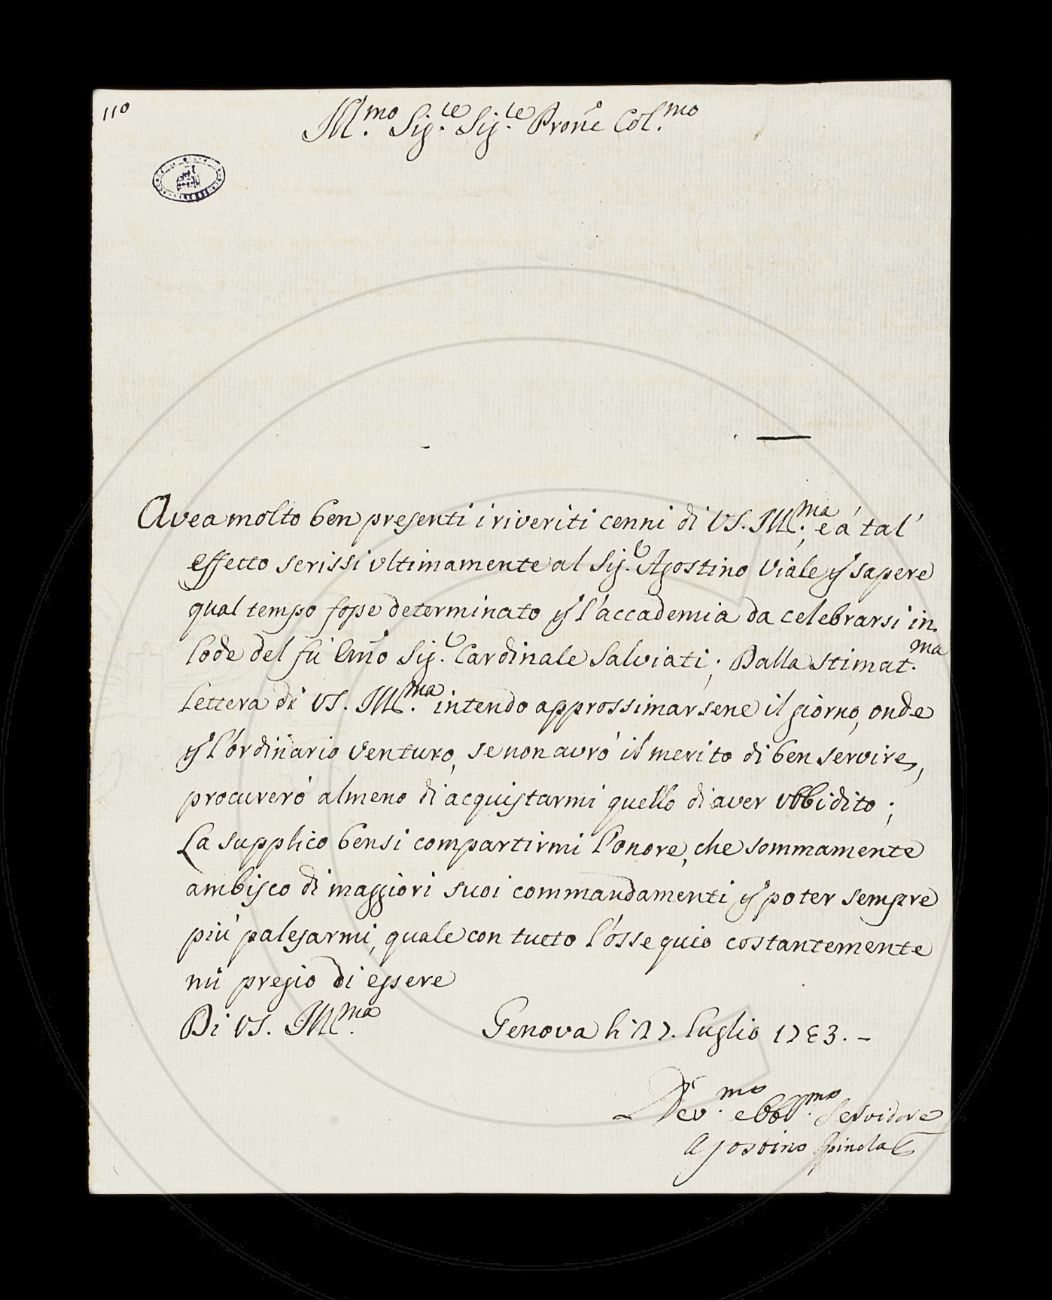 110
Ill.mo Sig.re Sig.re Prone Col.mo
Avea molto ben presenti i riveriti cenni di VS. Ill.ma, e á tal'
effetto scrissi ultimamente al Sig.r Agostino Viale p sapere
qual tempo fosse determinato p l'accademia da celebrarsi in
lode del fú Emo Sig.r Cardinale Salviati; Dalla stimat.ma
lettera di VS. Ill.ma intendo approssimarsene il giorno, onde
p l'ordinario venturo, se non avró il merito di ben servire,
procureró almeno di acquistarmi quello di aver ubbidito;
La supplico bensi compartirmi l'onore, che sommamente
ambisco di maggiori suoi commandamenti p poter sempre
piú palesarmi, quale con tutto l'ossequio costantemente
mi pregio di essere
Di VS. Ill.ma
Genova li 27. luglio 1783. -
Dev.mo e obbl.mo Servidore
Agostino Spinola